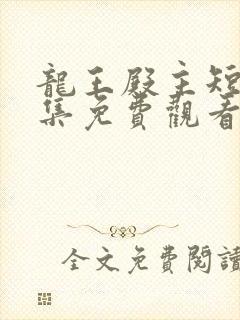 龍王殿主短
集免費觀看
全文免費閱讀